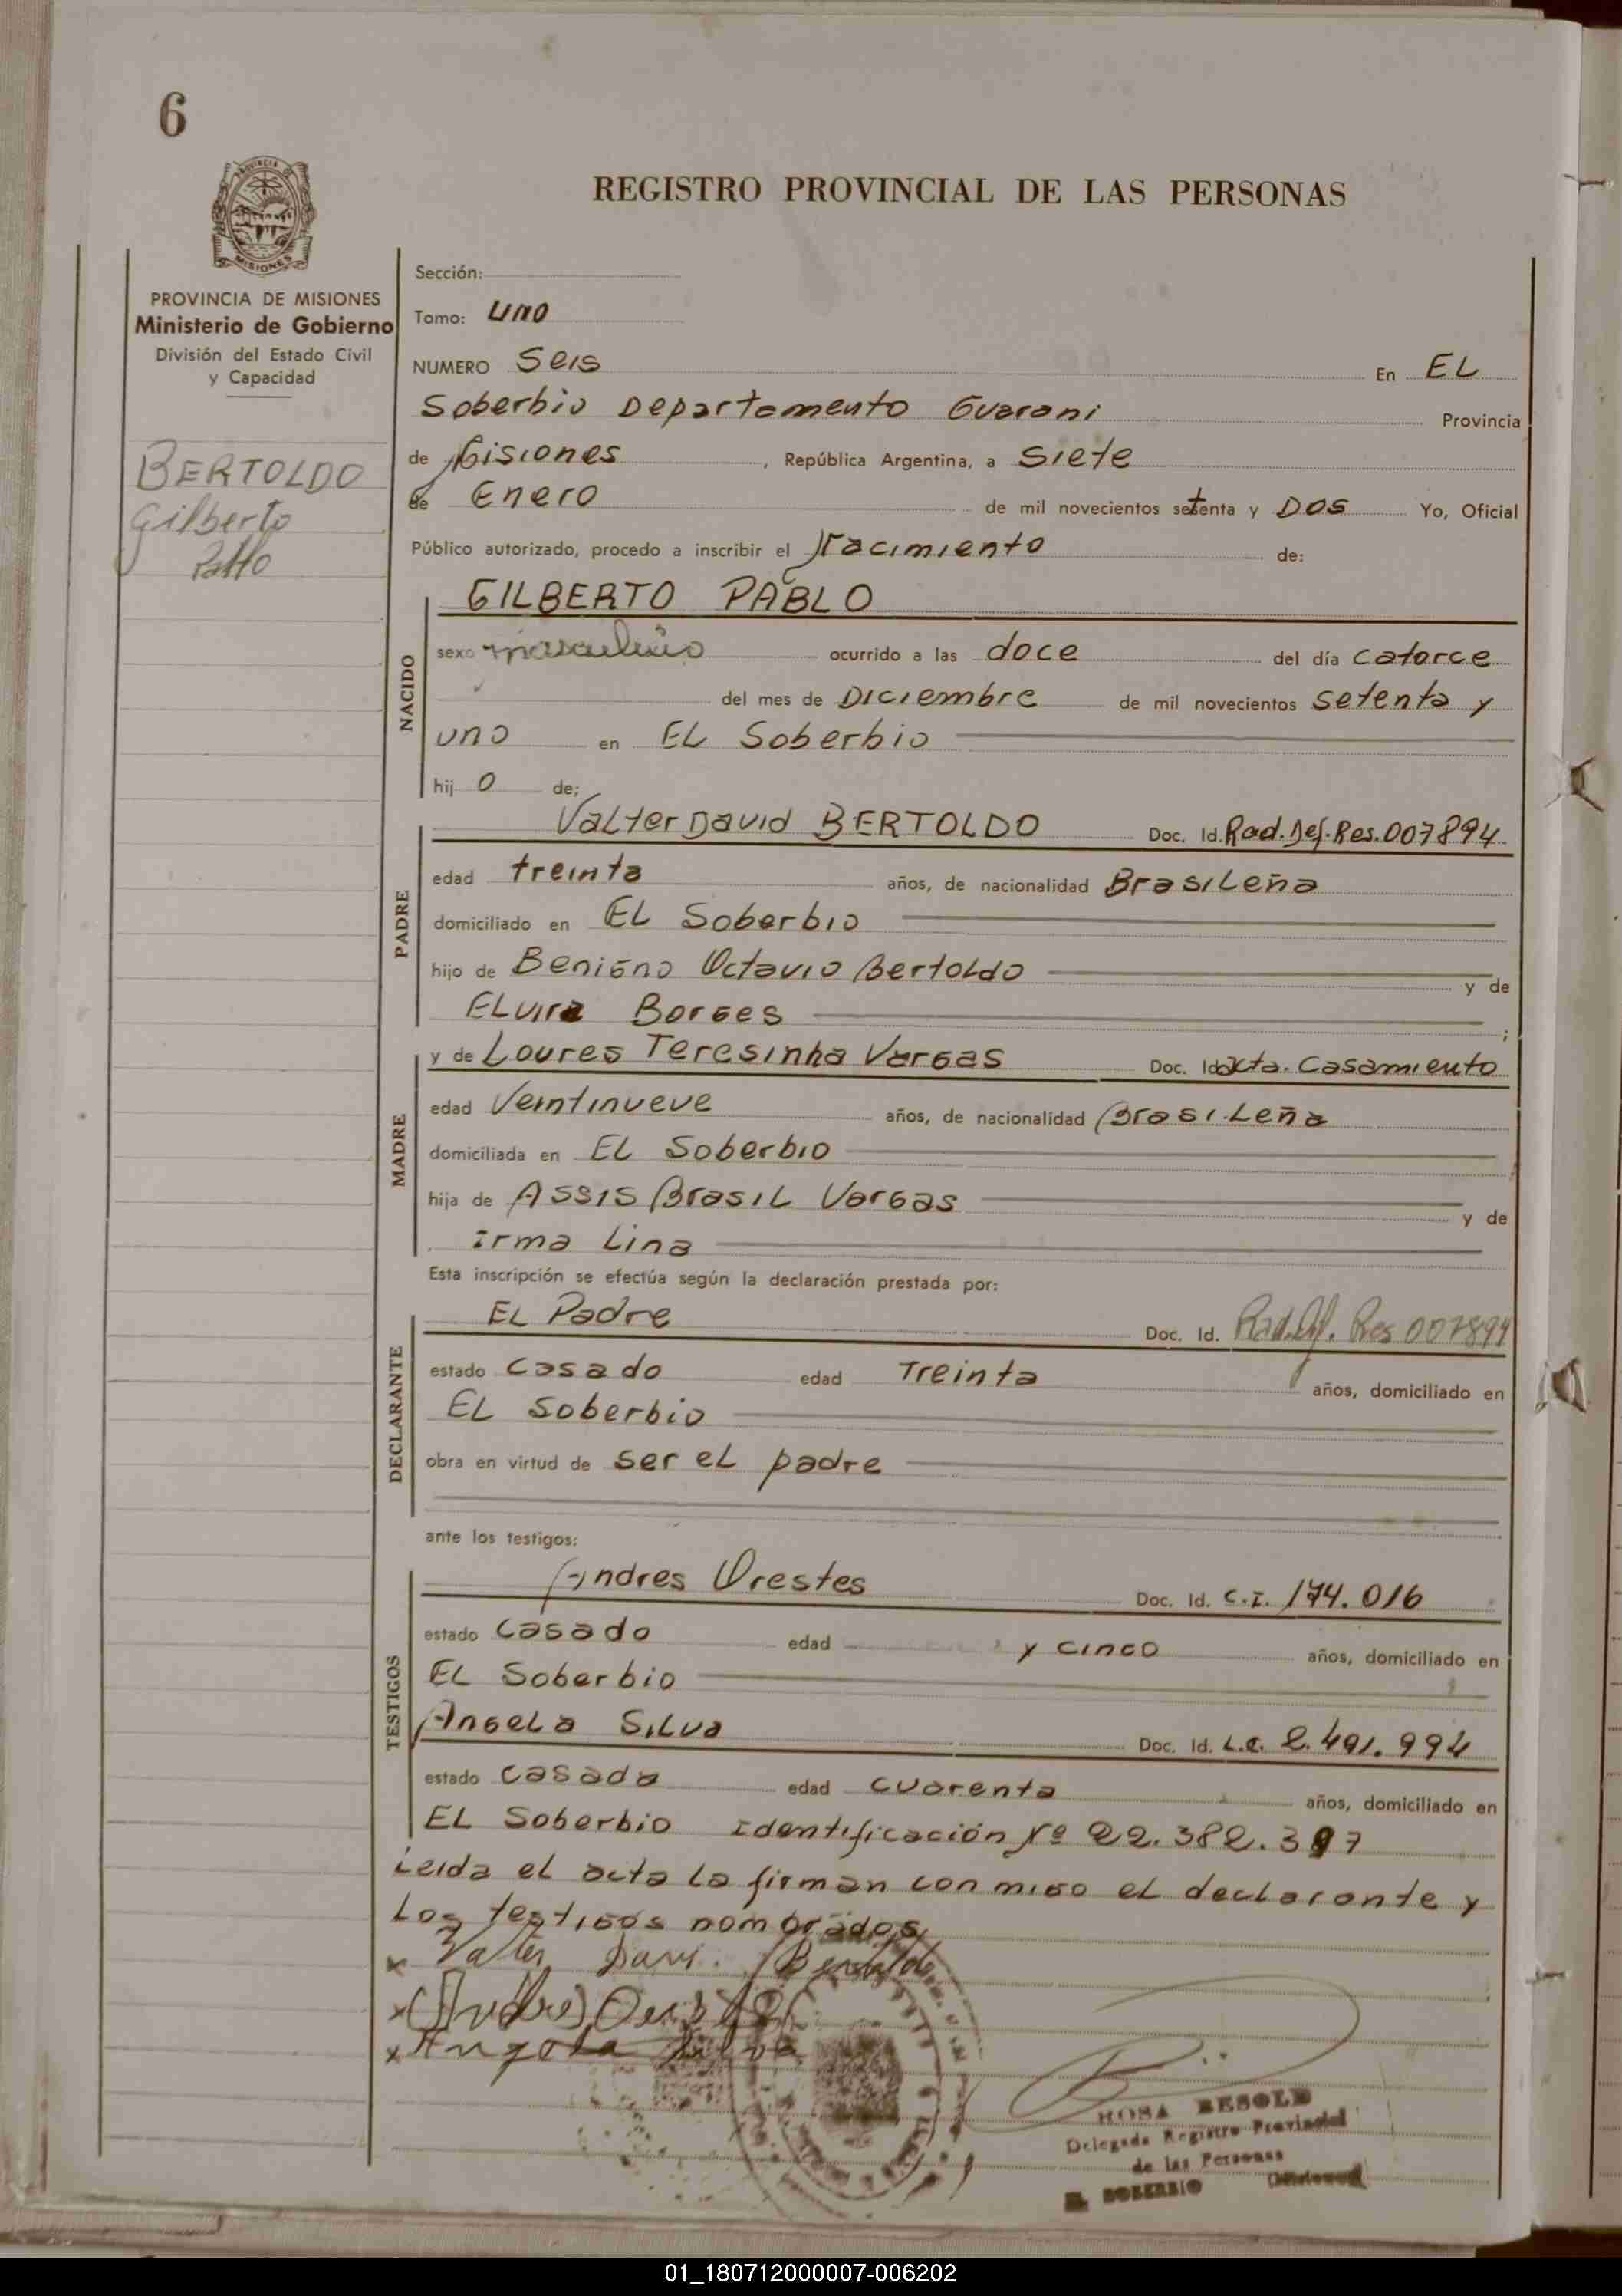 6
PROVINCIA
MISIONES
REGISTRO PROVINCIAL DE LAS PERSONAS
PROVINCIA DE MISIONES
Ministerio de Gobierno
División del Estado Civil
y Capacidad
BERTOLDO
Gilberto
Pablo
Sección:
Tomo: uno
NUMERO Seis En EL
Soberbio Departamento Guarani Provincia
de Misiones, República Argentina, a Siete
de Enero de mil novecientos setenta y DOS Yo, Oficial
Público autorizado, procedo a inscribir el Nacimiento de:
NACIDO
GILBERTO PABLO
sexo masculino ocurrido a las doce del día catorce
del mes de Diciembre de mil novecientos setenta y
uno en EL Soberbio
hijo de;
PADRE
Valter David BERTOLDO Doc. Id. Rad. Def. Res. 007894
edad treinta años, de nacionalidad Brasileña
domiciliado en EL Soberbio
hijo de Benigno Octavio Bertoldo y de
ELvira Borges ;
MADRE
y de Loures Teresinha Vargas Doc. Id. Acta. Casamiento
edad Veintinueve años, de nacionalidad Brasileña
domiciliada en EL Soberbio
hija de Assis Brasil Vargas y de
irma Lina
Esta inscripción se efectúa según la declaración prestada por:
DECLARANTE
EL Padre Doc. Id. Rad. Def. Res 007894
estado Casado edad Treinta años, domiciliado en
EL Soberbio
obra en virtud de ser el padre
ante los testigos:
TESTIGOS
Andres Orestes Doc. Id. C.I. 174.016
estado Casado edad y cinco años, domiciliado en
EL Soberbio
Angela Silva Doc. Id. L.C. 2.491.994
estado casada edad cuarenta años, domiciliado en
EL Soberbio Identificación Nº 22.382.397
Leida el acta la firman conmigo el declarante y
Los testigos nombrados
x Valter Davi. Bertoldo
x Andres Orestes
x Angela Silva
ROSA BESOLD
Delegada Registro Provincial
de las Personas
EL SOBERBIO (Misiones)
01_180712000007-006202